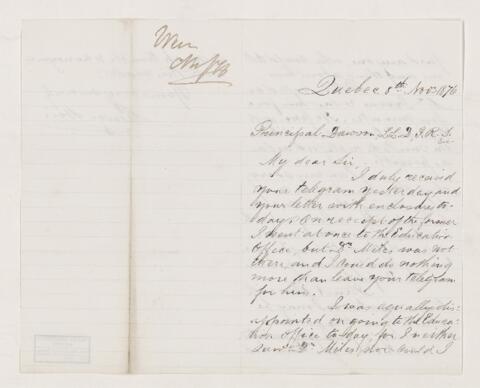 Quebec 8th Nov. 1876
Principal Dawson LL.D. F.R.S.
My dear Sir,
I duly received
your telegram yesterday and
your letter with enclosure to-
day. On receipt of the former
I went at once to the Education
Office, but Dr Miles was not
there, and I could do nothing
more than leave your telegram
for him.
I was equally dis-
appointed on going to the Educa-
tion Office to-day, for I neither
saw Dr Miles, nor could I